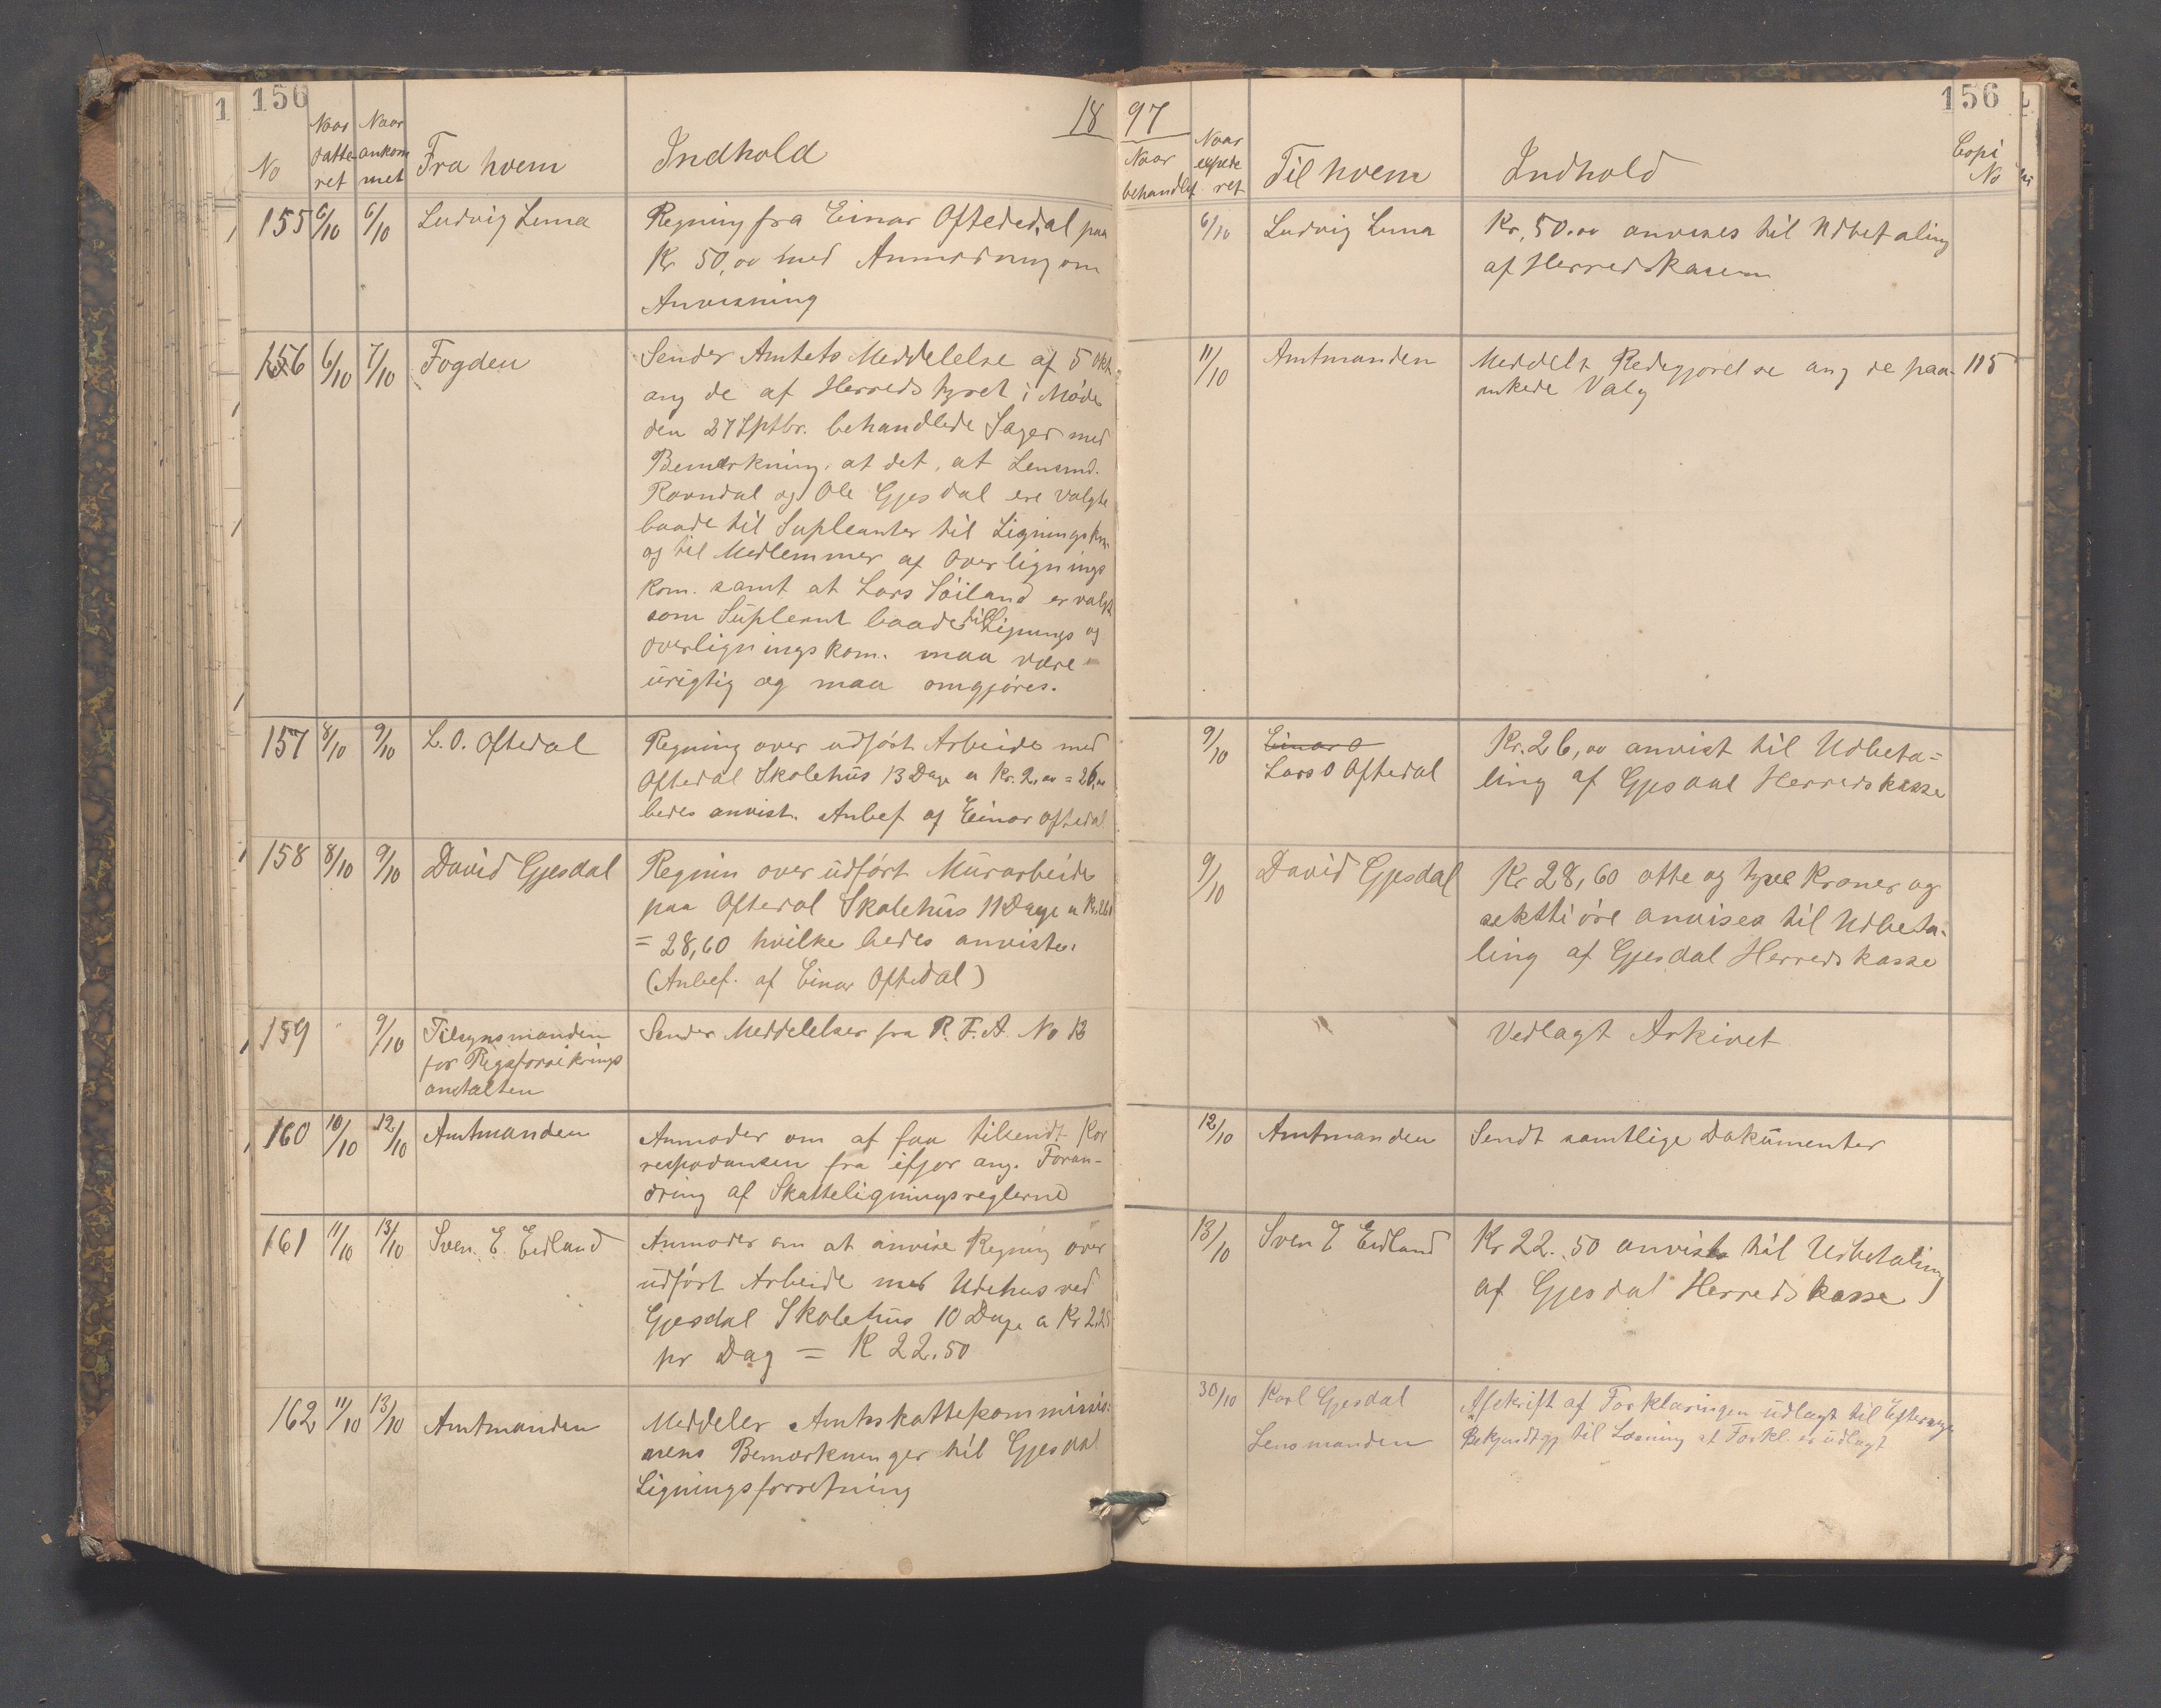 156
18
No
Naar datteret
Naar ankommet
Fra hvem
Indhold
155 6/10 6/10 Ludvig Lima
Regning fra Einar Oftededal paa
Kr 50,00 med Anmodning om
Anvisning
156 6/10 7/10 Fogden
Sender Amtets Meddelelse af 5 Okt
ang de af Herredstyret i Møde
den 27 Sptbr. behandlede Sager med
Bemærkning, at det, at Lensmd.
Ravndal og Ole Gjesdal ere valgte
baade til Supleanter til Ligningskm.
og til Medlemmer af Overlignings
kom. samt at Lars Söiland er valgt
som Supleant baade til Lignings og
overligningskom. maa være
urigtig og maa omgjøres.
157 8/10 9/10 L. O. Oftedal
Regning over udført Arbeide med
Oftedal Skolehus 13 Dage a Kr. 2,00 = 26,00
bedes anvist. Anbef af Einar Oftedal
158 8/10 9/10 David Gjesdal
Regnin over udført Murarbeide
paa Oftedal Skolehus 11 Dage a Kr 2,60
= 28,60 hvilke bedes anviste.
(Anbef. af Einar Oftedal)
159 " 9/10 Tilsynsmanden
for Rigsforsikrings
anstalten
Sender Meddelelser fra R. F. A. No 13
160 10/10 12/10 Amtmanden
Anmoder om at faa tilsendt Kor
respodansen fra ifjor ang. Foran-
dring af Skatteligningsreglerne
161 11/10 13/10 Sven. E. Eidland
Anmoder om at anvise Regning over
udført Arbeide med Udehus ved
Gjesdal Skolehus 10 Dage a Kr 2.25
pr Dag = K 22.50
162 11/10 13/10 Amtmanden
Meddeler Amtsskattekommissio-
nens Bemærkninger til Gjesdal
Ligningsforretning
97
156
Naar behandlet
Naar expederet
Til hvem
Indhold
Copi No
6/10 Ludvig Lima
Kr. 50.00 anvises til Udbetaling
af Herredskassen
11/10 Amtmanden
Meddelt Redegjørelse ang de paa- 115
ankede Valg
9/10 Einar O
Lars O Oftedal
Kr. 26,00 anvist til Udbeta=
ling af Gjesdal Herredskasse
9/10 David Gjesdal
Kr 28,60 otte og tyve Kroner og
sekstti øre anvises til Udbeta=
ling af Gjesdal Herredskasse
Vedlagt Arkivet
12/10 Amtmanden
Sendt samtlige Dokumenter
13/10 Sven E Eidland
Kr 22.50 anvist til Udbetaling
af Gjesdal Herredskasse
30/10 Karl Gjesdal
Afskrift af Forklaringen udlagt til Eftersyn
Lensmanden
Bekjendtgj til Læsning at Forkl. er udlagt